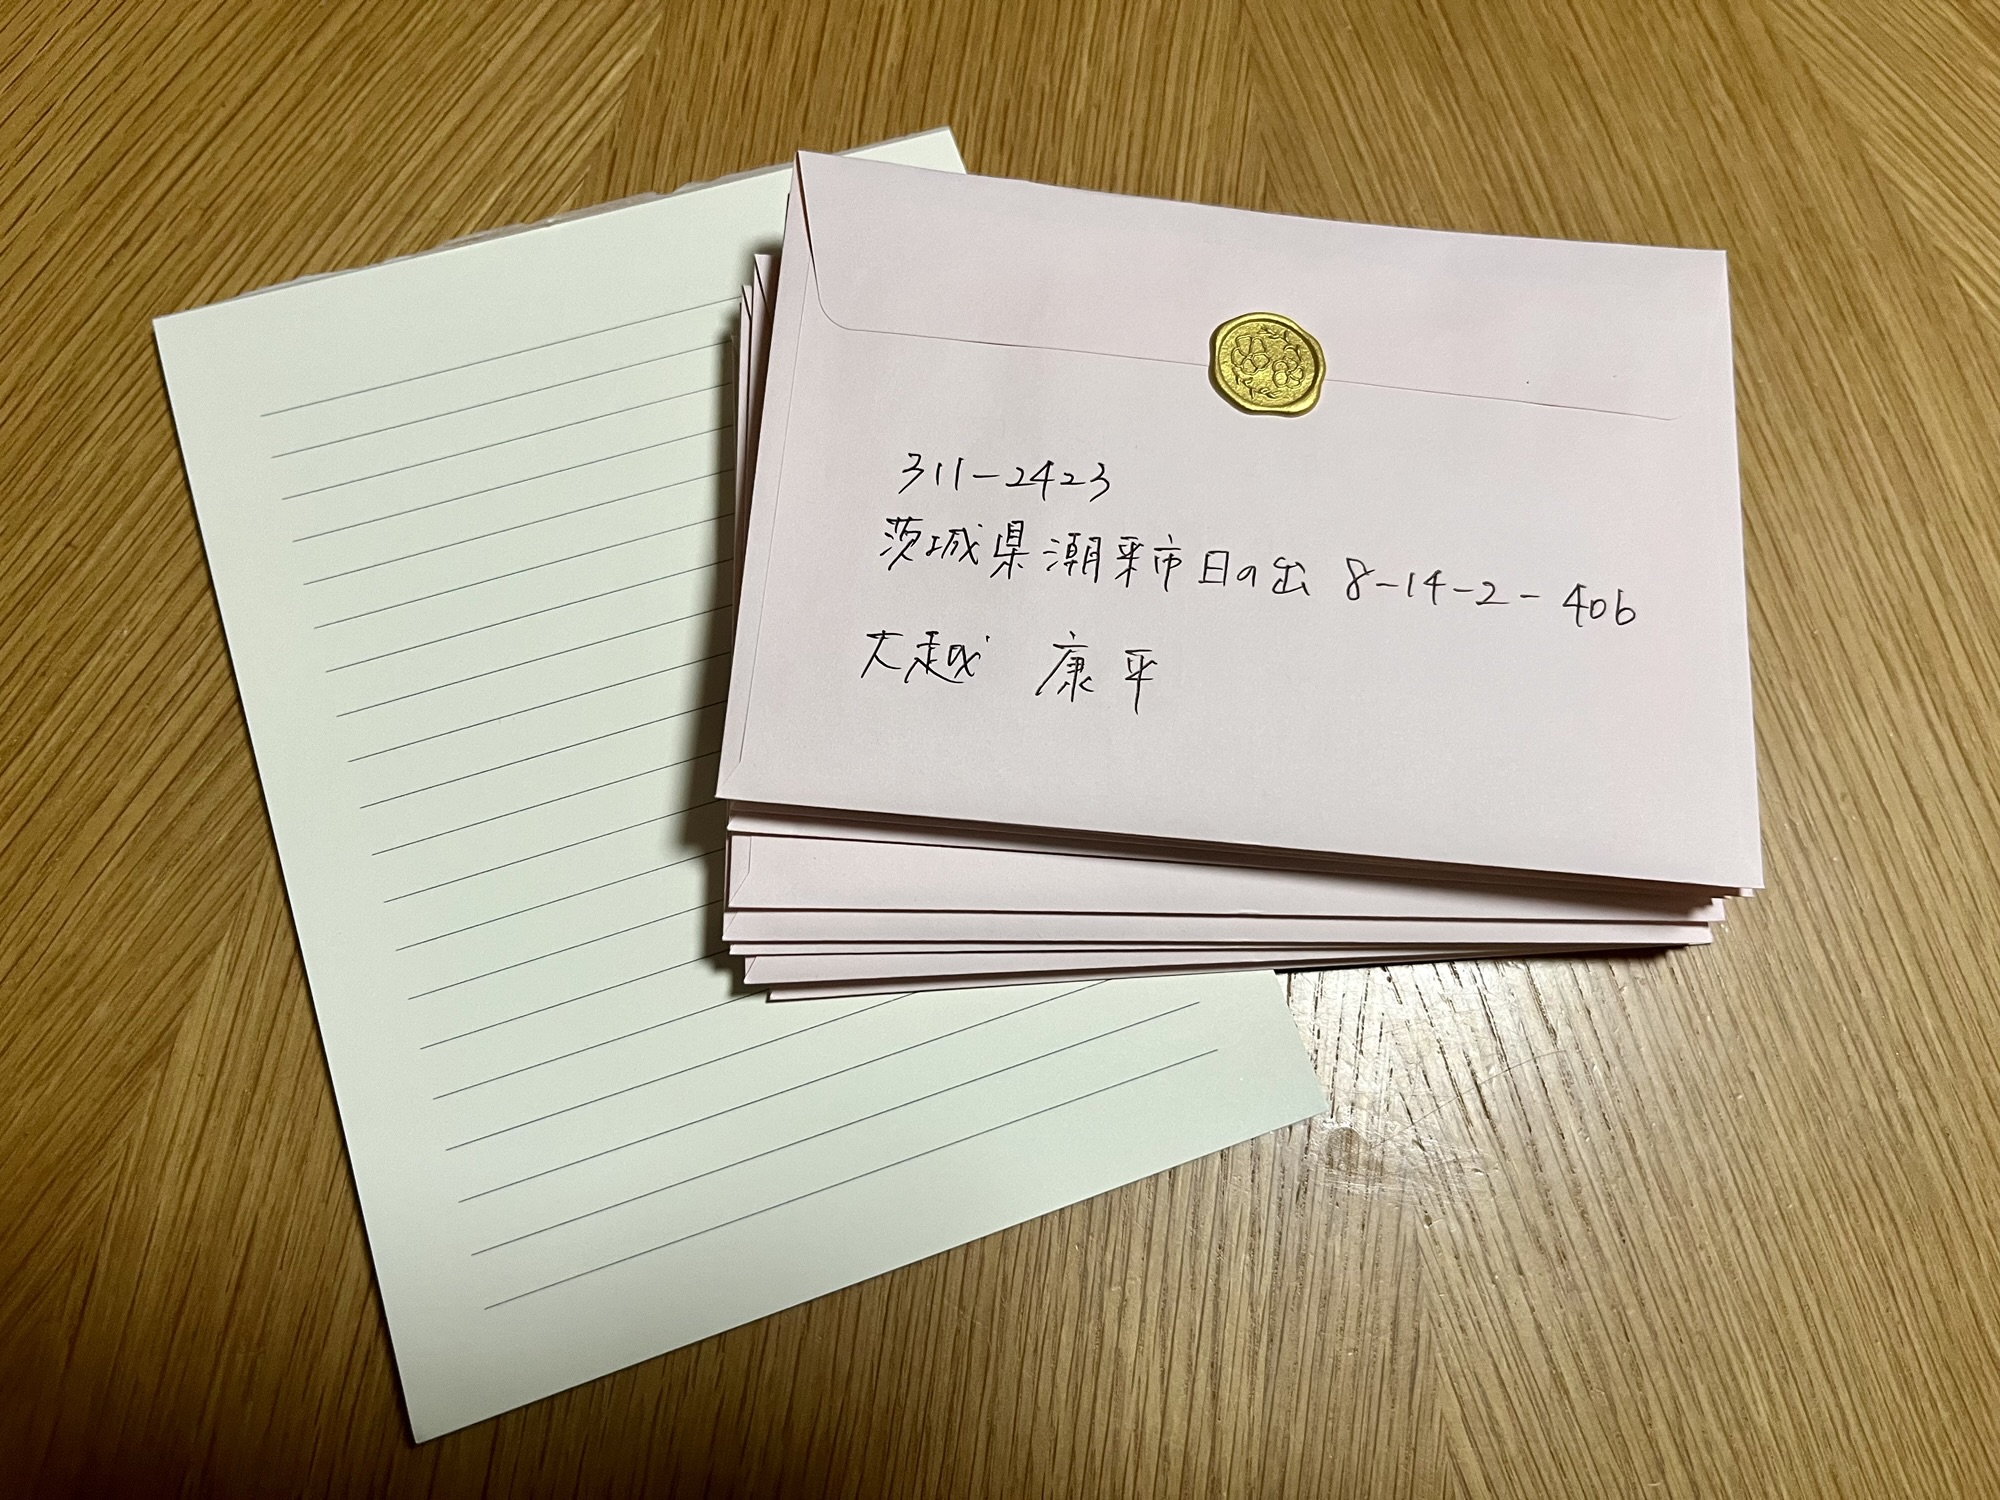 311-2423
茨城県潮来市日の出 8-14-2-406
大越 康平